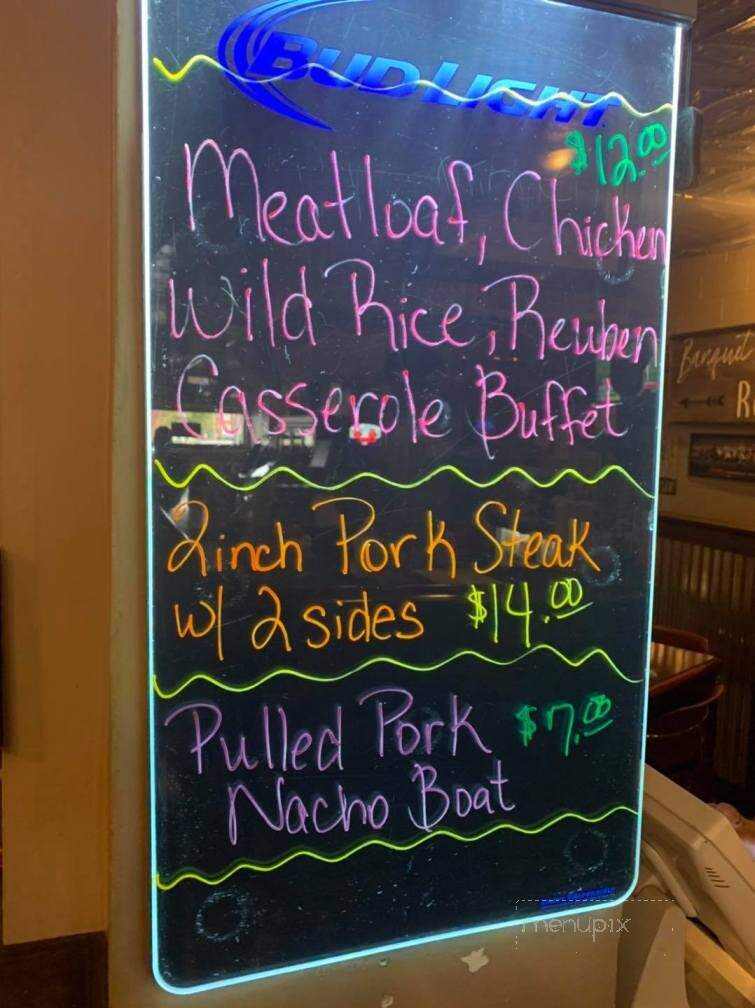 BUD LIGHT
$12.00
Meatloaf, Chicken
Wild Rice, Reuben
Casserole Buffet
2inch Pork Steak
w/ 2 sides $14.00
Pulled Pork $7.00
Nacho Boat
Banquet
R
menupix